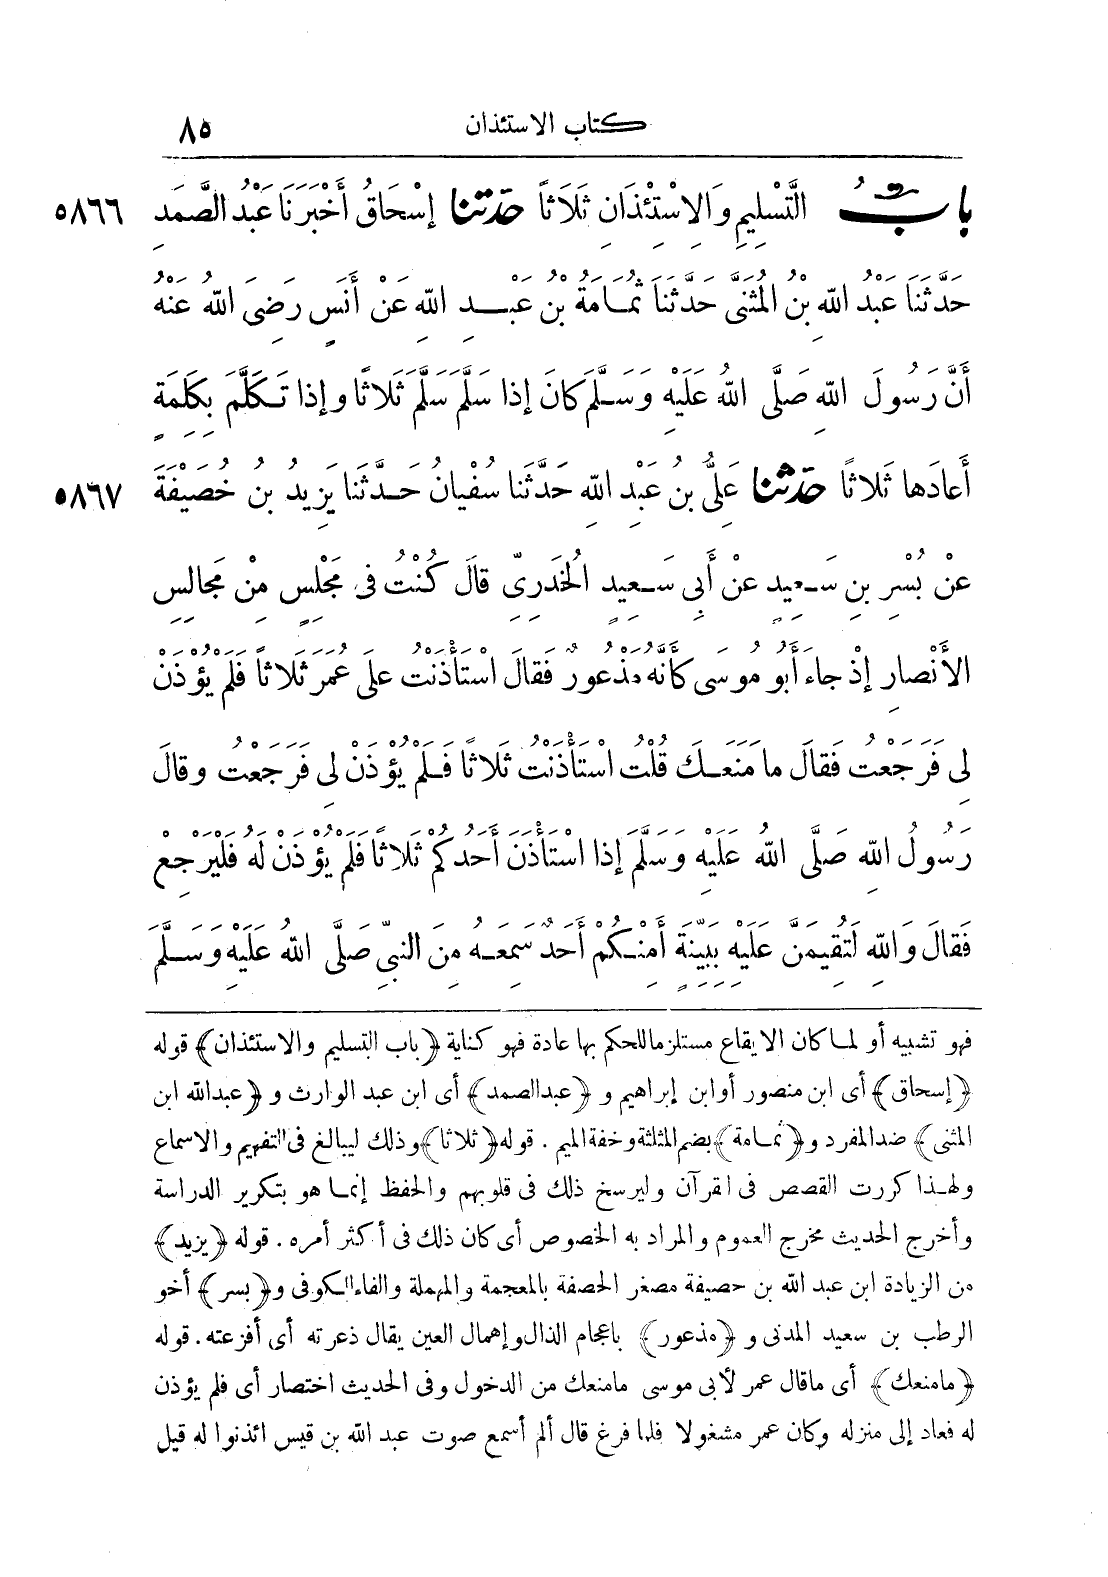 كتاب الاستئذان ٨٥
بابُ التَّسْلِيمِ وَالِاسْتِئْذَانِ ثَلَاثًا حَدَّثَنَا إِسْحَاقُ أَخْبَرَنَا عَبْدُ الصَّمَدِ ٥٨٦٦
حَدَّثَنَا عَبْدُ اللهِ بْنُ المُثَنَّى حَدَّثَنَا ثُمَامَةُ بْنُ عَبْدِ اللهِ عَنْ أَنَسٍ رَضِىَ اللهُ عَنْهُ
أَنَّ رَسُولَ اللهِ صَلَّى اللهُ عَلَيْهِ وَسَلَّمَ كَانَ إِذا سَلَّمَ سَلَّمَ ثَلَاثًا وإِذا تَكَلَّمَ بِكَلِمَةٍ
أَعَادَها ثَلاثًا حَدَّثَنَا عَلِىُّ بنُ عَبْدِ اللهِ حَدَّثَنا سُفْيانُ حَدَّثَنا يَزِيدُ بنُ خُصَيْفَةَ ٥٨٦٧
عَنْ بُسْرِ بنِ سَعِيدٍ عَنْ أَبِى سَعِيدٍ الخُدَرِىِّ قالَ كُنْتُ فى مَجْلِسٍ مِنْ مَجالِسِ
الأَنْصارِ إِذْ جاءَ أَبُو مُوسَى كَأَنَّهُ مَذْعُورٌ فَقالَ اسْتَأْذَنْتُ علَى عُمَرَ ثَلاثًا فَلَمْ يُؤْذَنْ
لِى فَرَجَعْتُ فَقالَ ما مَنَعَكَ قُلْتُ اسْتَأْذَنْتُ ثَلاثًا فَلَمْ يُؤْذَنْ لِى فَرَجَعْتُ وقالَ
رَسُولُ اللهِ صَلَّى اللهُ عَلَيْهِ وَسَلَّمَ إِذا اسْتَأْذَنَ أَحَدُكُمْ ثَلاثًا فَلَمْ يُؤْذَنْ لَهُ فَلْيَرْجِعْ
فَقالَ وَاللهِ لَتُقِيمَنَّ عَلَيْهِ بِبَيِّنَةٍ أَمِنْكُمْ أَحَدٌ سَمِعَهُ مِنَ النبىِّ صَلَّى اللهُ عَلَيْهِ وَسَلَّمَ
فهو تشبيه أو لما كان الايقاع مستلزما للحكم بها عادة فهو كناية ﴿باب التسليم والاستئذان﴾ قوله
﴿إسحاق﴾ أى ابن منصور أو ابن إبراهيم و ﴿عبد الصمد﴾ أى ابن عبد الوارث و ﴿عبد الله ابن
المثنى﴾ ضد المفرد و ﴿ثمامة﴾ بضم المثلثة وخفة الميم . قوله ﴿ثلاثا﴾ وذلك ليبالغ فى التفهيم والاسماع
ولهذا كررت القصص فى القرآن وليرسخ ذلك فى قلوبهم والحفظ إنما هو بتكرير الدراسة
وأخرج الحديث مخرج العموم والمراد به الخصوص أى كان ذلك فى أكثر أمره . قوله ﴿يزيد﴾
من الزيادة ابن عبد الله بن حصيفة مصغر الخصفة بالمعجمة والمهملة والفاء الكوفى و ﴿بسر﴾ أخو
الرطب بن سعيد المدنى و ﴿مذعور﴾ باعجام الذال وإهمال العين يقال ذعرته أى أفزعته . قوله
﴿ما منعك﴾ أى ماقال عمر لأبى موسى مامنعك من الدخول وفى الحديث اختصار أى فلم يؤذن
له فعاد إلى منزله وكان عمر مشغولا فلما فرغ قال ألم أسمع صوت عبد الله بن قيس ائذنوا له قيل